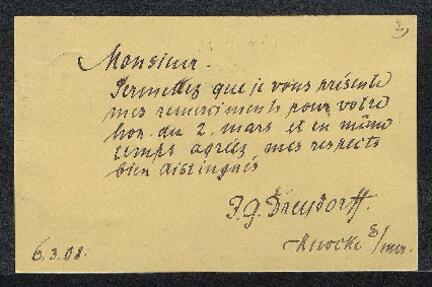 2)
Monsieur.
Permettez que je vous présente
mes remerciments pour votre
hon. du 2. mars et en même
temps agréez mes respects
bien distingués
J. G. Dreydorff.
Knocke s/mer.
6.3.08.